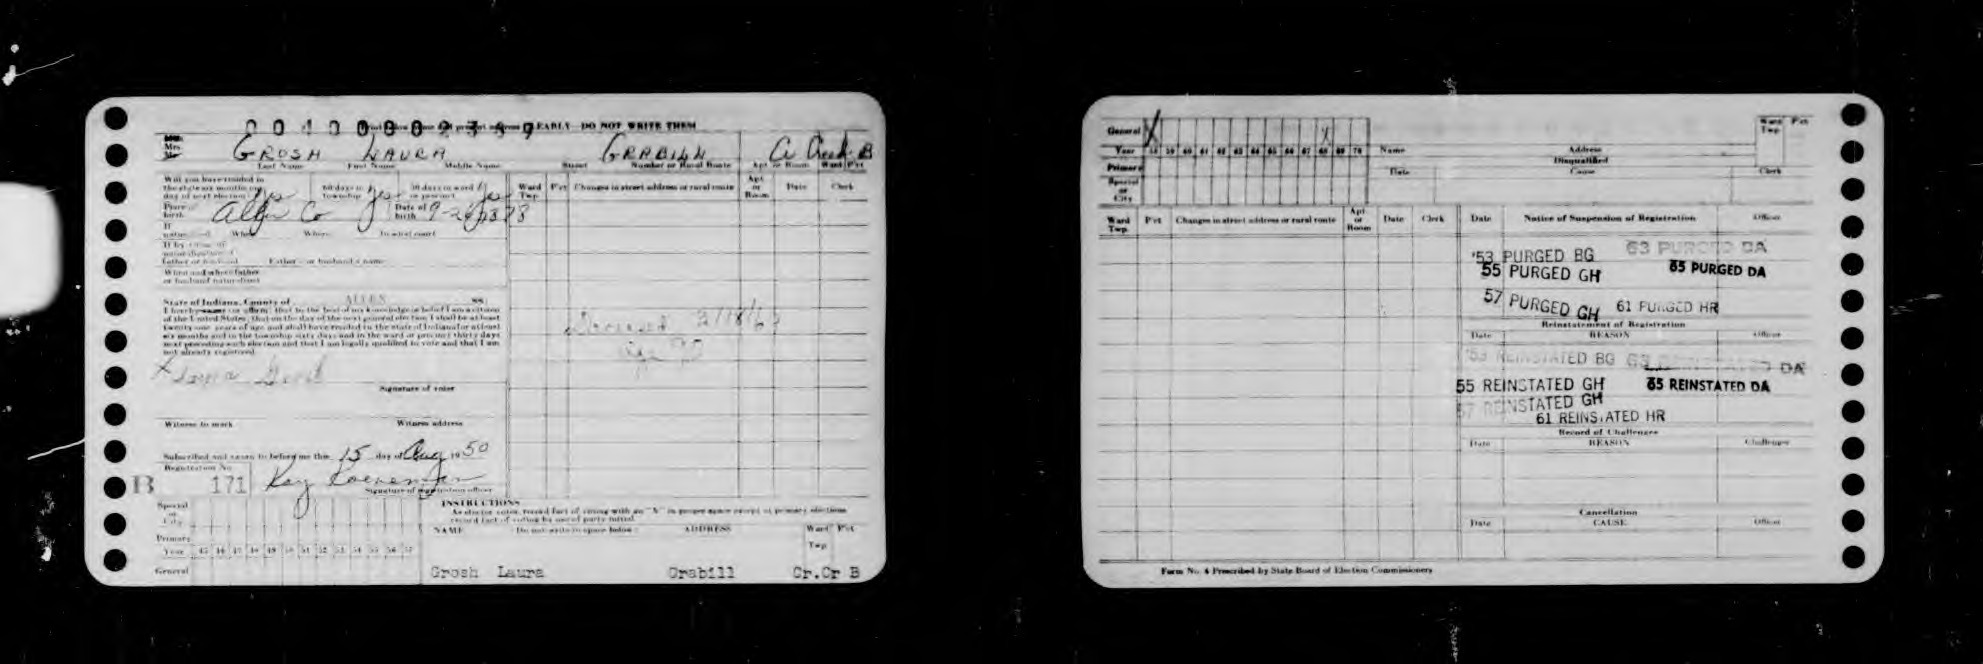 CLEARLY—DO NOT WRITE THEM
Mrs.
GROSH LAURA GRABILL Creek B
Last Name First Name Middle Name Street Number or Rural Route Apt or Room Ward Pct
Will you have resided in
the state six months on 60 days in 30 days in ward
day of next election? Yes Township Yes or precinct Yes
Ward Twp. Pct Changes in street address or rural route Apt or Room Date Clerk
Place of birth Allen Co Date of birth
If naturalized When Where In what court
Father or husband Father's or husband's name
When and where father
or husband naturalized
State of Indiana, County of ALLEN ss:
I hereby swear (or affirm) that to the best of my knowledge or belief I am a citizen
of the United States; that on the day of the next general election I shall be at least
twenty one years of age and shall have resided in the state of Indiana for at least
six months and in the township sixty days and in the ward or precinct thirty days
next preceding such election and that I am legally qualified to vote and that I am
not already registered.
Deceased
age 90
X
Signature of voter
Witness to mark Witness address
Subscribed and sworn to before me this 15 day of Aug 1950
Registration No.
B 171 Kay
Signature of registration officer
Special or City
Primary
Year 45 46 47 48 49 50 51 52 53 54 55 56 57
General
INSTRUCTIONS
As elector votes, record fact of voting with an "X" in proper space except at primary elections
record fact of voting by use of party initial.
NAME Do not write in space below ADDRESS Ward Twp. Pct
Grosh Laura Grabill Cr.Cr B
General X
Year 58 59 60 61 62 63 64 65 66 67 68 69 70 Name Address Ward Twp. Pct
Disqualified
Primary Date Cause Clerk
Special or City
Ward Twp. Pct Changes in street address or rural route Apt or Room Date Clerk
Date Notice of Suspension of Registration Officer
'53 PURGED BG 63 PURGED DA
55 PURGED GH 65 PURGED DA
57 PURGED GH 61 PURGED HR
Reinstatement of Registration
Date REASON Officer
'53 REINSTATED BG 63 REINSTATED DA
55 REINSTATED GH 65 REINSTATED DA
57 REINSTATED GH
61 REINSTATED HR
Record of Challenges
Date REASON Challenger
Cancellation
Date CAUSE Officer
Form No. 4 Prescribed by State Board of Election Commissioners